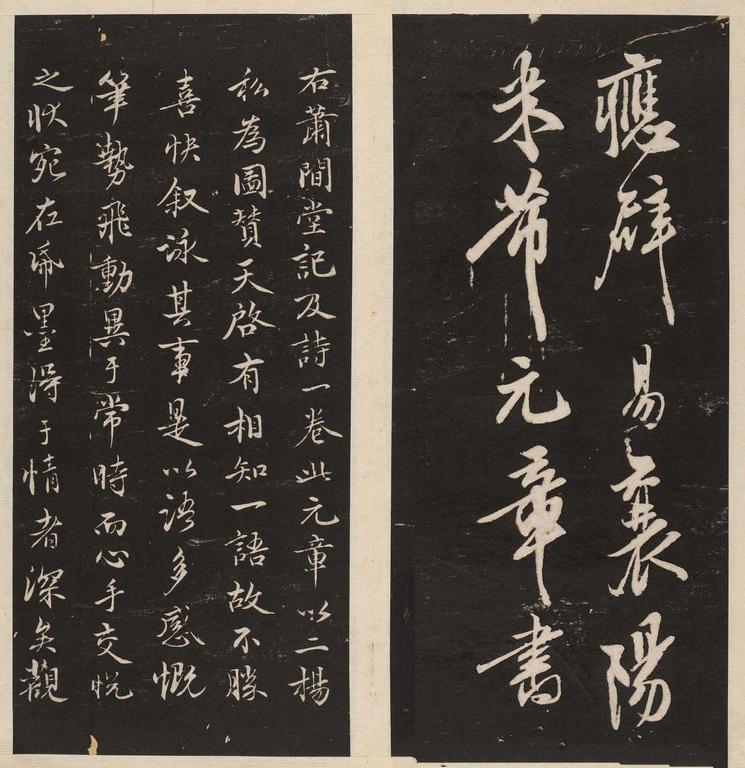 應辟易襄陽
米芾元章書
右蕭閒堂記及詩一卷此元章以二楊
私為圖贊天啓有相知一語故不勝
喜快叙詠其事是以語多感慨
筆勢飛動異于常時而心手交悅
之狀宛在帋墨得于情者深矣觀